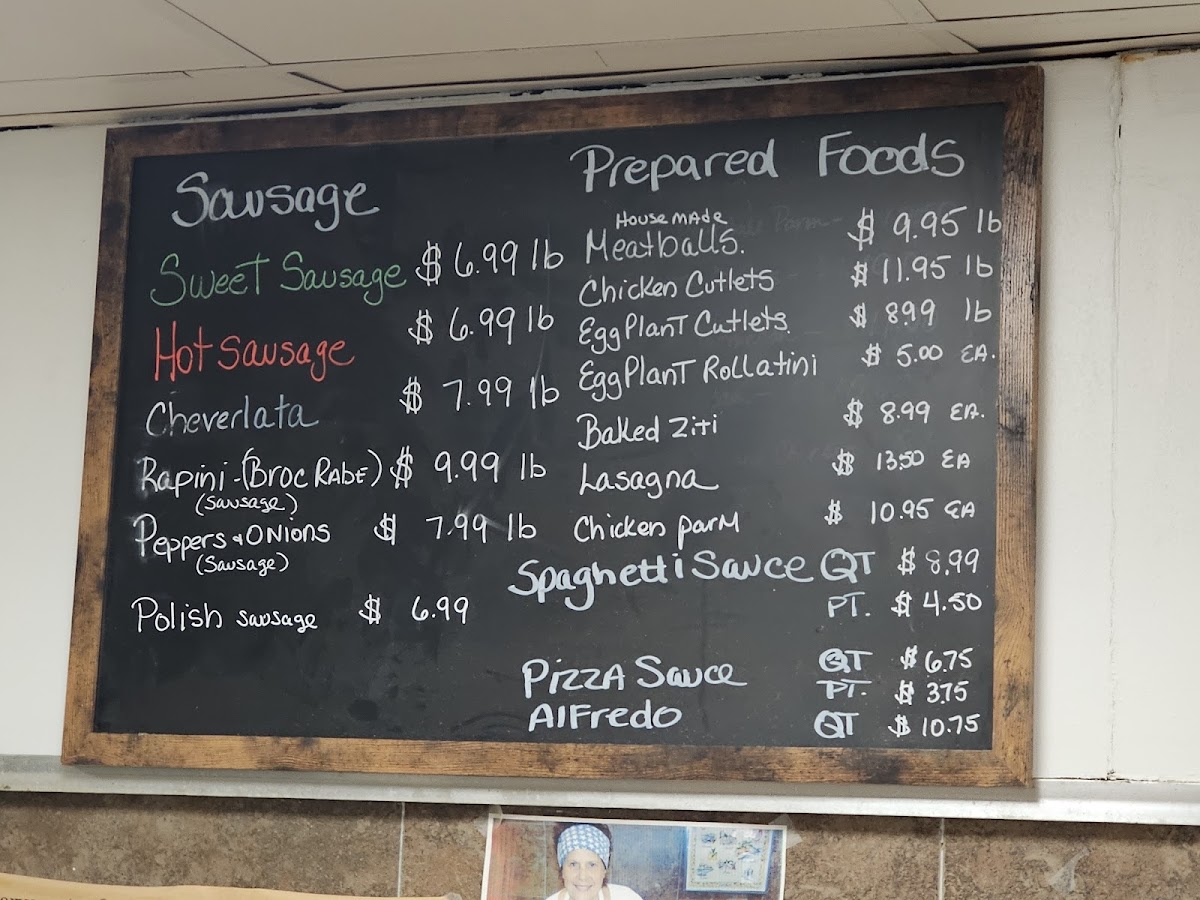 Sausage
Sweet Sausage $ 6.99 lb
Hot Sausage $ 6.99 lb
Cheverlata $ 7.99 lb
Rapini - (Broc Rabe) $ 9.99 lb
(Sausage)
Peppers & Onions $ 7.99 lb
(Sausage)
Polish Sausage $ 6.99
Prepared Foods
House Made
Meatballs. $ 9.95 lb
Chicken Cutlets $ 11.95 lb
EggPlant Cutlets. $ 8.99 lb
EggPlant Rollatini $ 5.00 EA.
Baked Ziti $ 8.99 EA.
Lasagna $ 13.50 EA
Chicken Parm $ 10.95 EA
Spaghetti Sauce QT $ 8.99
PT. $ 4.50
Pizza Sauce QT $ 6.75
PT. $ 3.75
Alfredo QT $ 10.75